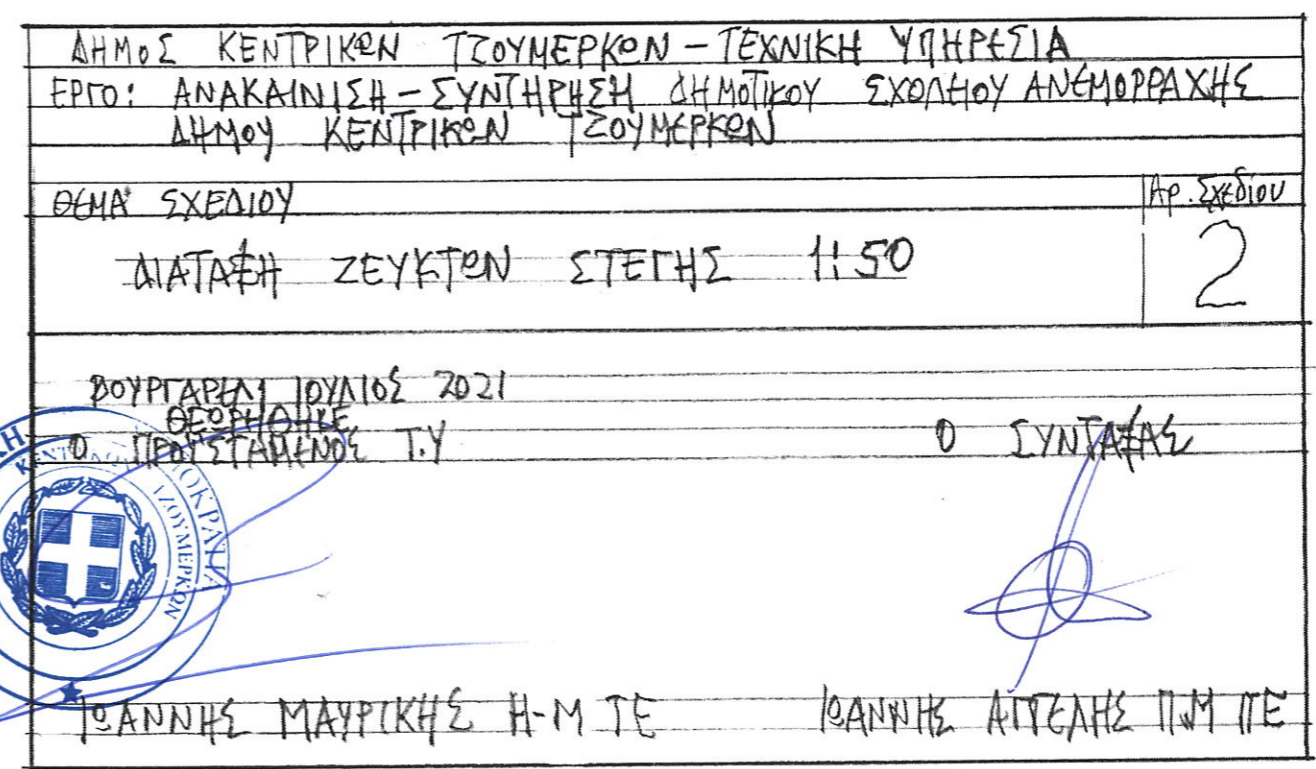 ΔΗΜΟΣ ΚΕΝΤΡΙΚΩΝ ΤΖΟΥΜΕΡΚΩΝ – ΤΕΧΝΙΚΗ ΥΠΗΡΕΣΙΑ
ΕΡΓΟ: ΑΝΑΚΑΙΝΙΣΗ – ΣΥΝΤΗΡΗΣΗ ΔΗΜΟΤΙΚΟΥ ΣΧΟΛΗΟΥ ΑΝΕΜΟΡΡΑΧΗΣ
ΔΗΜΟΥ ΚΕΝΤΡΙΚΩΝ ΤΖΟΥΜΕΡΚΩΝ
ΘΕΜΑ ΣΧΕΔΙΟΥ
Αρ. Σχεδίου
ΔΙΑΤΑΞΗ ΖΕΥΚΤΩΝ ΣΤΕΓΗΣ 1:50
2
ΒΟΥΡΓΑΡΕΛΙ ΙΟΥΛΙΟΣ 2021
ΘΕΩΡΗΘΗΚΕ
Ο ΠΡΟΪΣΤΑΜΕΝΟΣ Τ.Υ
Ο ΣΥΝΤΑΞΑΣ
ΚΕΝΤ
ΤΖΟΥΜΕΡΚΩΝ
ΙΩΑΝΝΗΣ ΜΑΥΡΙΚΗΣ Η-Μ ΤΕ
ΙΩΑΝΝΗΣ ΑΓΓΕΛΗΣ Π.Μ ΠΕ